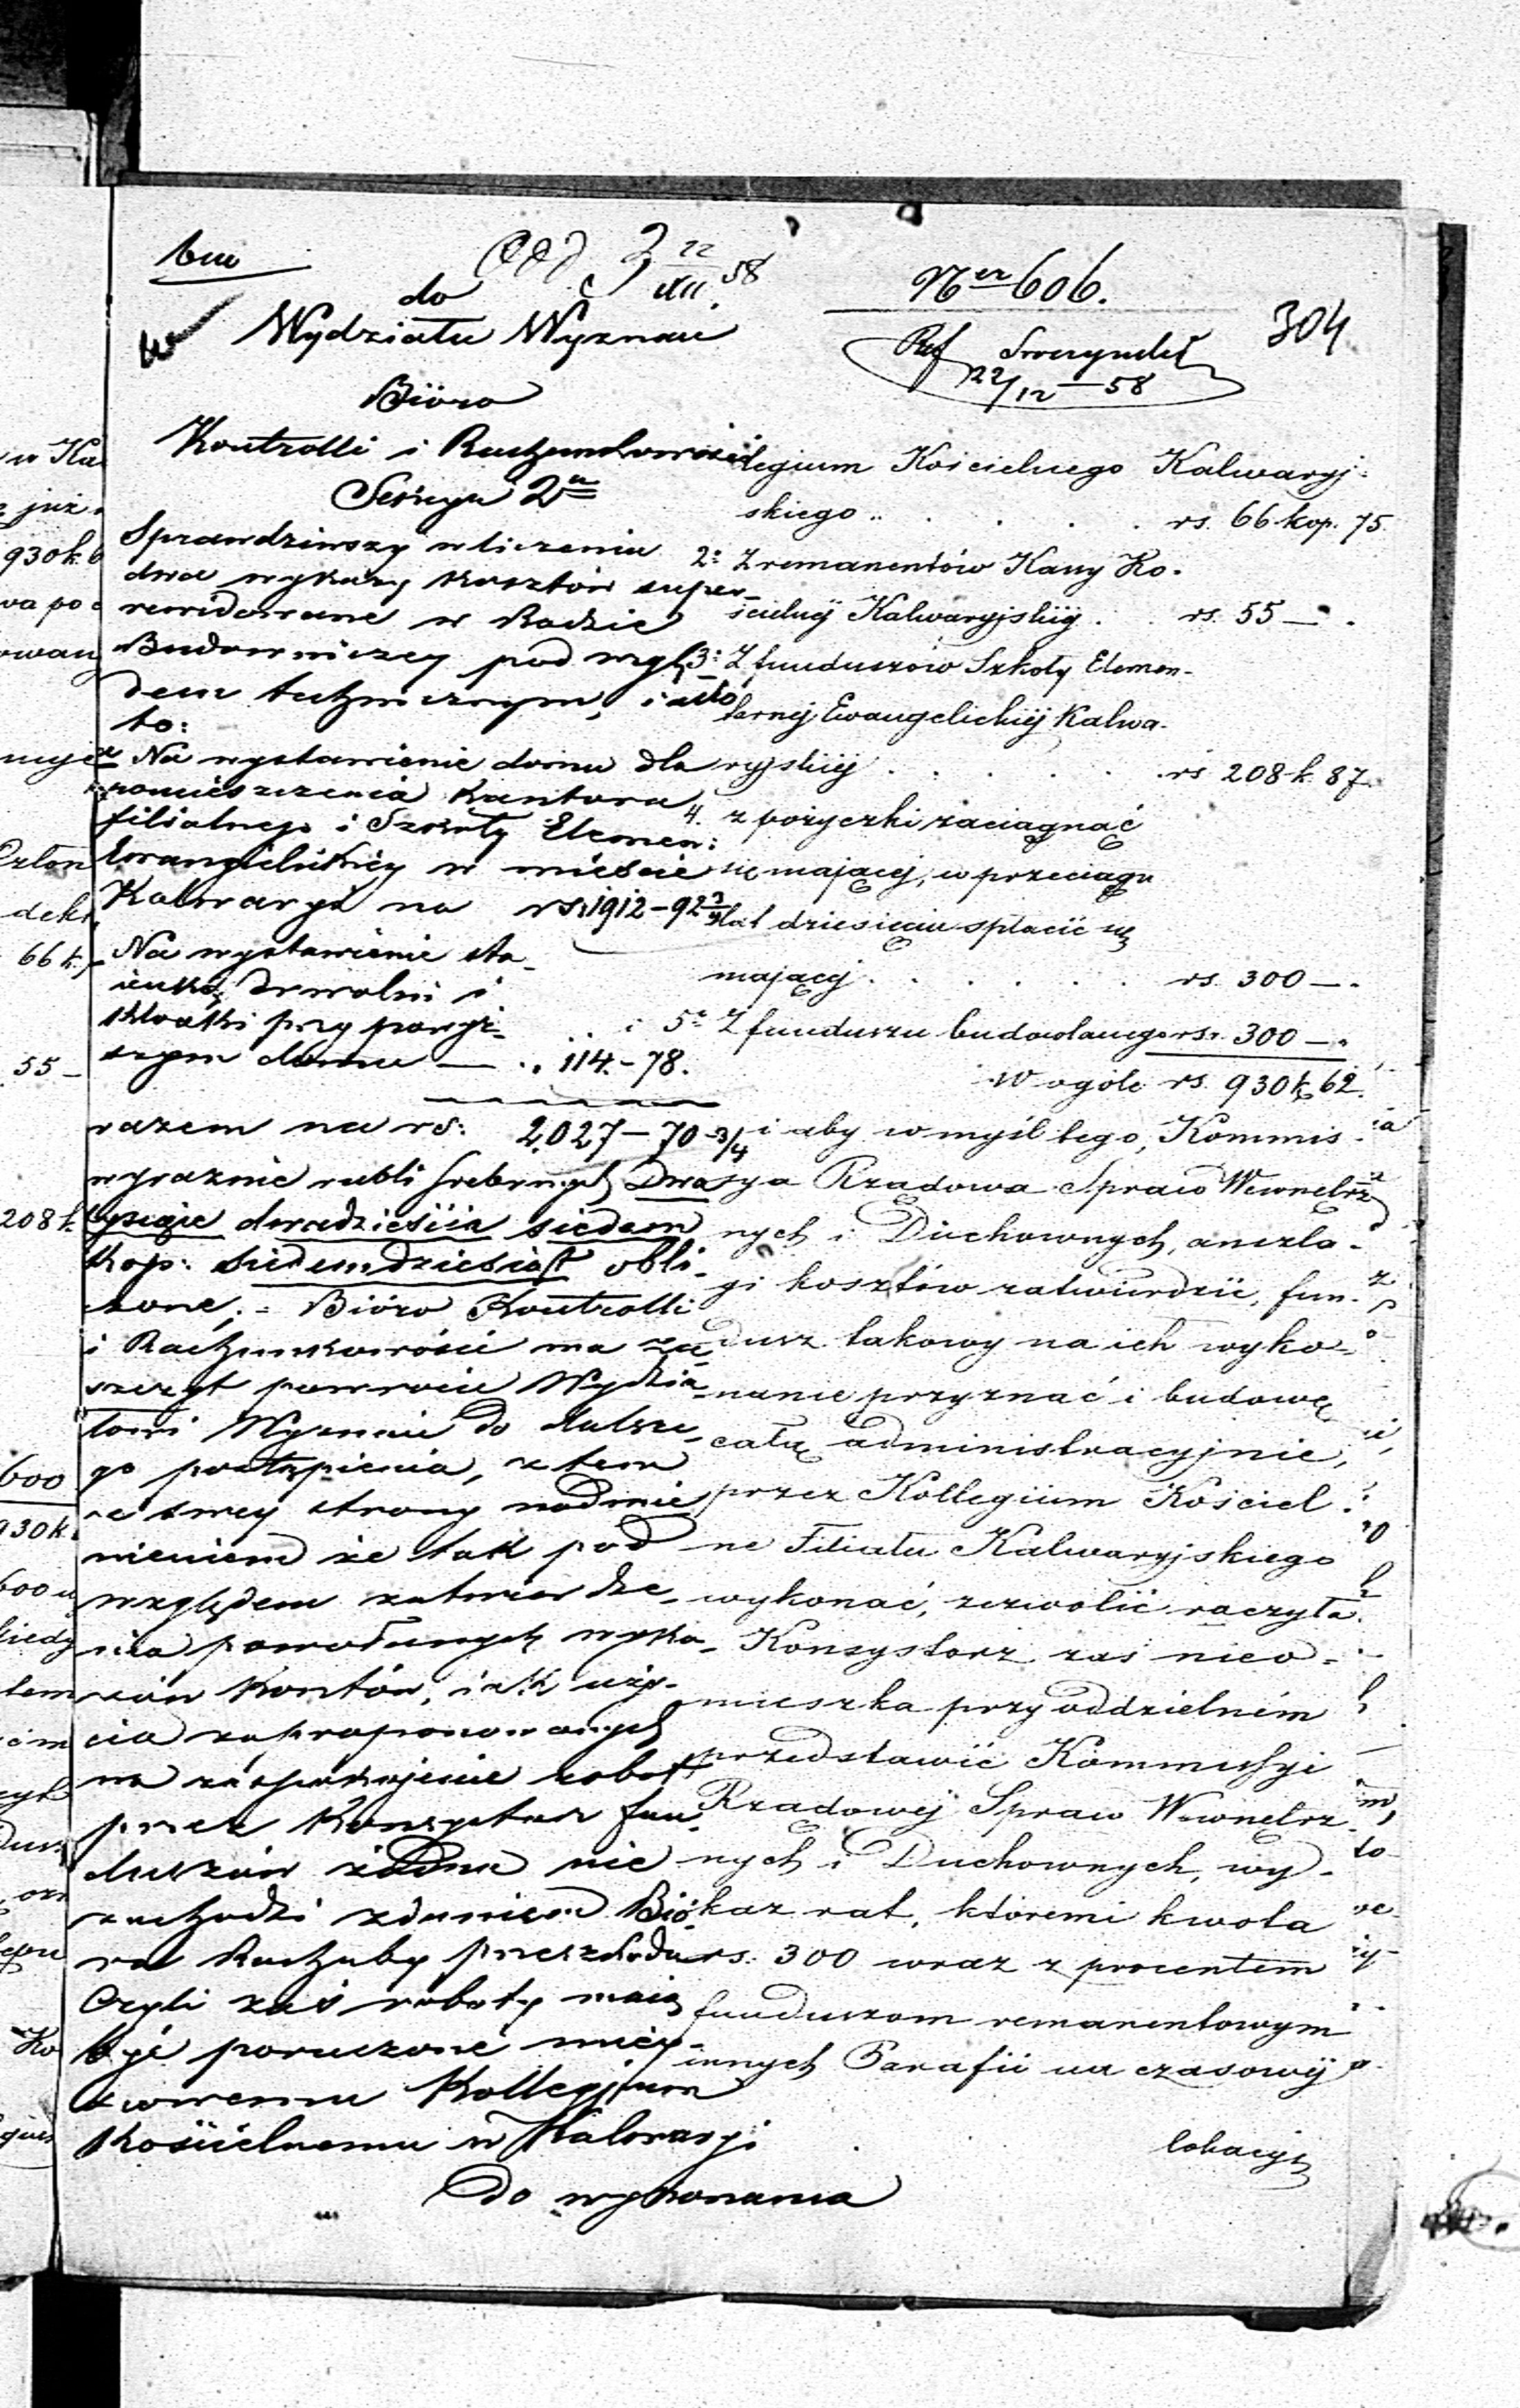 do
Wydziału Wyznań
Bióro
Kontrolli i Rachunkowości
Sekcya 2a
Sprawdziwszy w liczeniu
dwa wykazy kosztów super-
rewidowane w Radzie
Budowniczey pod wzglę-
dem technicznym, i
to:
Na wystawienie domu dla
pomieszczenia Kantora
filialnego i Szkoły Elemen:
Ewangielickiey w mieście
Kalwaryi na rs. 1912-92 3/4
Na wystawienie sta-
ienki, drwalni i
kloaki przy powyż-
szym domu — „ 114.-78.
razem na rs: 2,027-70 3/4
wyraznie rubli srebrnych Dwa
tysiące dwadzieścia siedem
kop: siedemdziesiąt obli-
czone; = Bióro Kontrolli
i Rachunkowości ma za-
szczyt powrócić Wydzia-
łowi Wyznań do dalsze-
go postąpienia, z tem
ze swey strony nadmie-
nieniem że tak pod
względem zatwierdze-
nia powołanych wyka-
zów kosztów, iak uży-
cia zaproponowanych
na zaspokojenie robot
przez Konsystorz fun-
duszów żadna nie
zachodzi zdaniem Bió-
ra Rachuby przeszkoda
Czyli zaś roboty maią
być poruczone miey-
scowemu Kollegjum
Kościelnemu w Kalwaryi
do wykonania
Ner 606.
304
Ref
22/12 – 58
legium Kościelnego Kalwaryj-
skiego . . . . . rs. 66 kop. 75.
2: Z remanentów Kassy Ko-
ścielnéj Kalwaryjskiéj . . rs. 55 — .
3: Z funduszów Szkoły Elemen-
tarnéj Ewangelickiéj Kalwa-
ryjskiéj . . . . . rs 208 k 87.
4. z pożyczki zaciągnąć
się mającéj, w przeciągu
lat dziesięciu spłacić się
mającéj . . . . . rs. 300 — .
i 5: Z funduszu budowlanego rs. 300 — .
W ogóle rs. 930 k 62.
i aby w myśl tego, Kommis-
sya Rządowa Spraw Wewnętrz-
nych i Duchownych, anszla-
gi kosztów zatwierdzić, fun-
dusz takowy na ich wyko-
nanie przyznać i budowę
całą administracyjnie,
przez Kollegium Kościel-
ne Filiału Kalwaryjskiego
wykonać, zezwolić raczyła.
Konsystorz zaś nieo-
mieszka przy oddzielném
przedstawić Kommissyi
Rządowéj Spraw Wewnętrz-
nych i Duchownych, wy-
kaz rat, któremi kwota
rs. 300 wraz z procentem
funduszom remanentowym
innych Parafii na czasowéj
lokacyi